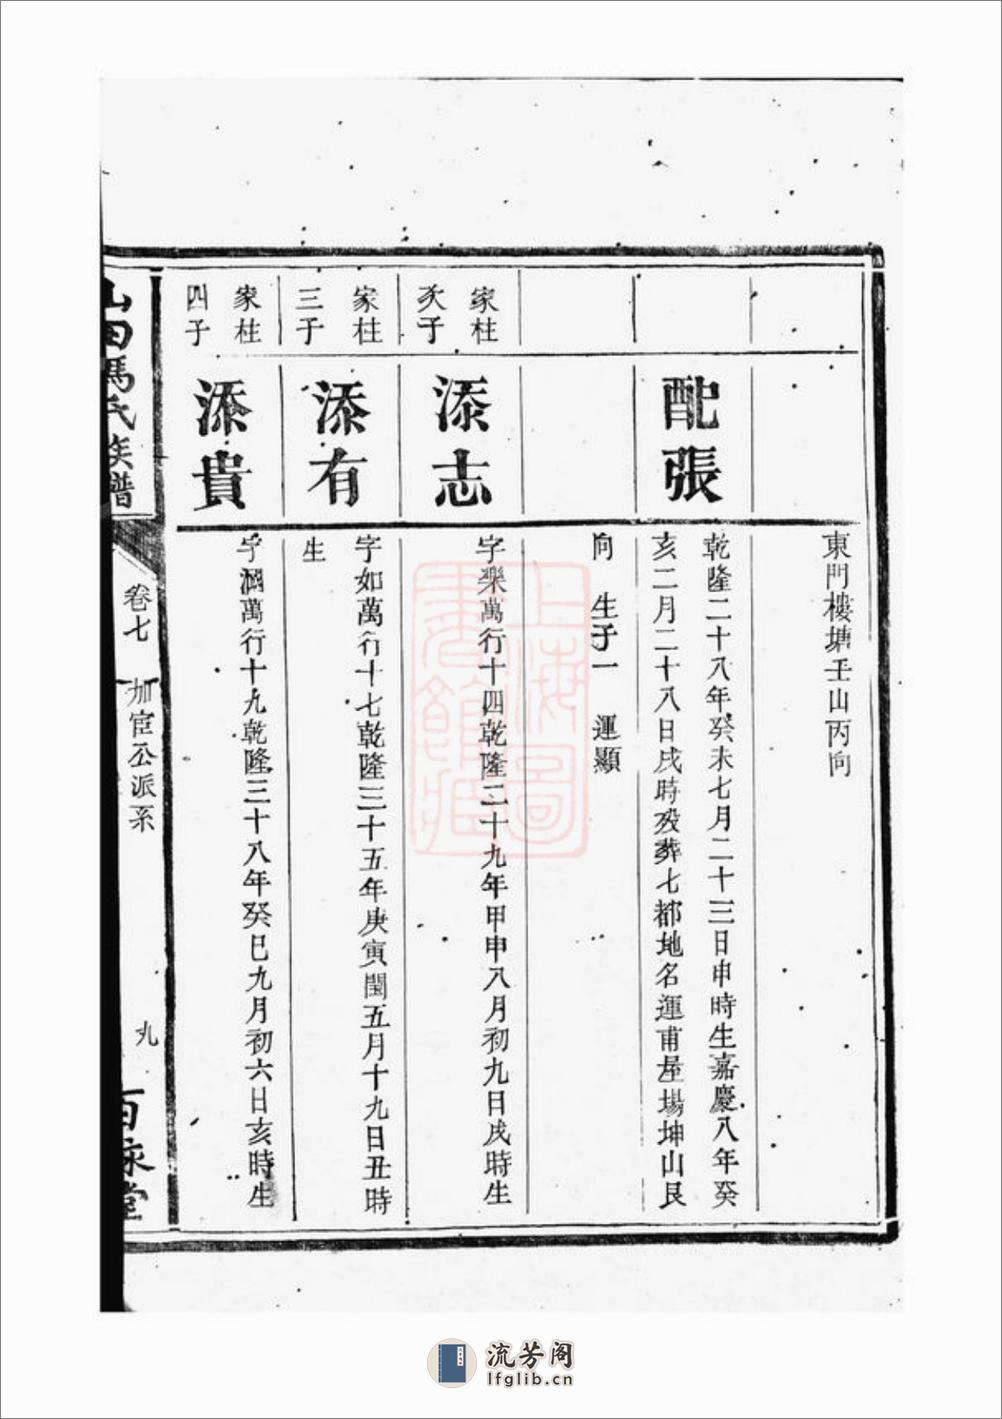 東門樓塘壬山丙向
配張
乾隆二十八年癸未七月二十三日申時生嘉慶八年癸
亥二月二十八日戌時歿葬七都地名運甫屋場坤山艮
向　生子一　運顯
家柱
次子
添志
字樂萬行十四乾隆二十九年甲申八月初九日戌時生
家柱
三子
添有
字如萬行十七乾隆三十五年庚寅閏五月十九日丑時
生
家柱
四子
添貴
萬行十九乾隆三十八年癸巳九月初六日亥時生
山田馬氏族譜
卷七
加宦公派系
九
百汞堂
上海圖
書館藏
流芳阁
lfglib.cn